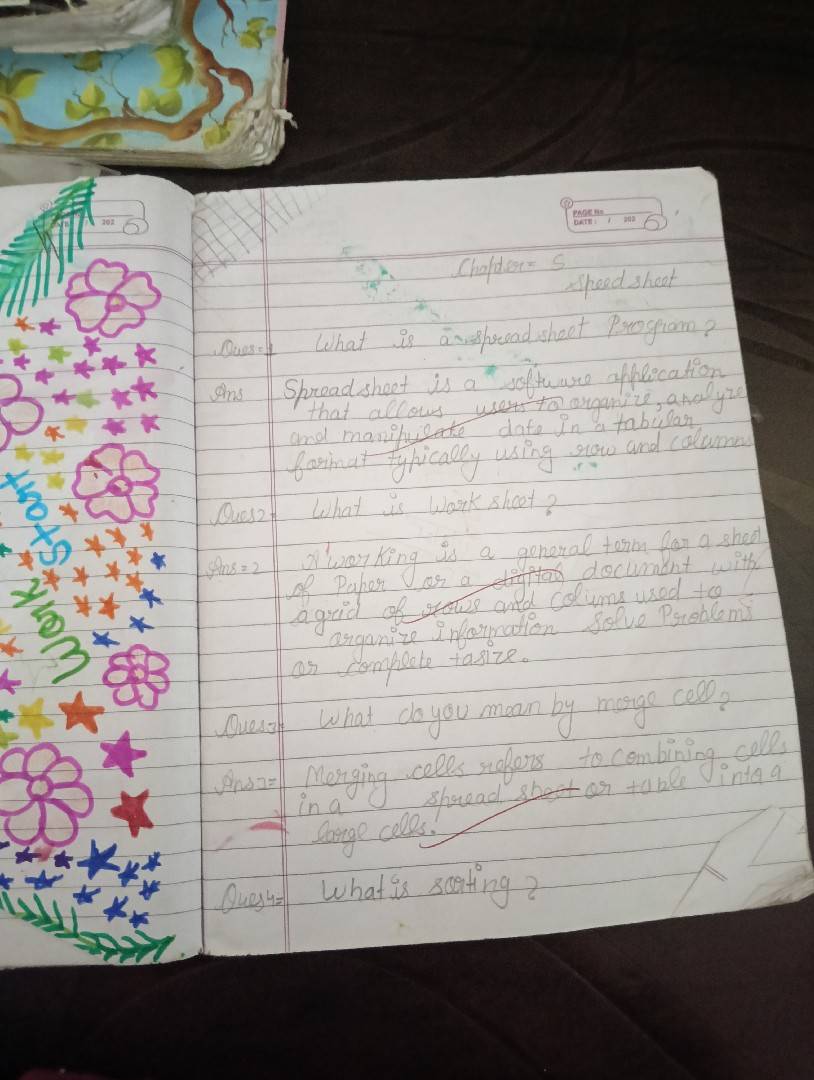 Work Start
PAGE No.
DATE: / 202
Chapter = 5
Speed sheet
Ques=1 What is a spreadsheet Program?
Ans Spreadsheet is a software application
that allows users to organize, analyze
and manipulate date in a tabular
format typically using row and columns
Ques2= What is work sheet?
Ans=2 A working is a general term for a shed
of Paper or a digital document with
a grid of rows and colums used to
arganize information solve Problems
or complete tasize.
Ques3= What do you mean by merge cell?
Ans3= Merging cells refers to combining cells
in a spread sheet or table into a
large cells.
Ques4= What is sorting?